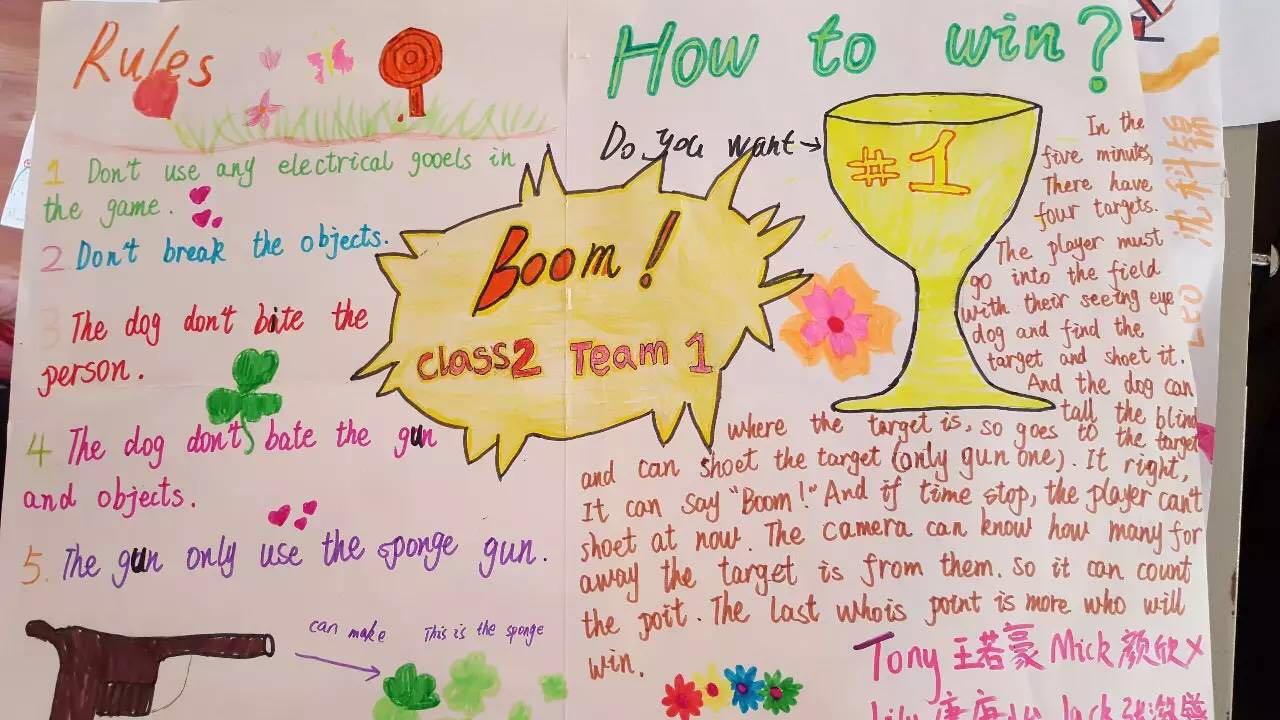 Rules
1 Don't use any electrical gooels in
the game.
2 Don't break the objects.
3 The dog don't bite the
person.
4 The dog don't bate the gun
and objects.
5. The gun only use the sponge gun.
can make
This is the sponge
Boom!
Class2 Team 1
How to win?
Do you want
#1
In the
five minutes,
There have
four targets.
The player must
go into the field
with their seeing eye
dog and find the
target and shoet it.
And the dog can
tall the blind
where the target is, so goes to the target
and can shoet the target (only gun one). It right,
It can say "Boom!" And if time stop, the player can't
shoet at now. The camera can know how many for
away the target is from them. So it can count
the poit. The last whois point is more who will
win.
Tony 王若豪 Mick 颜欣
Lily Jack
沈科锦
LEO